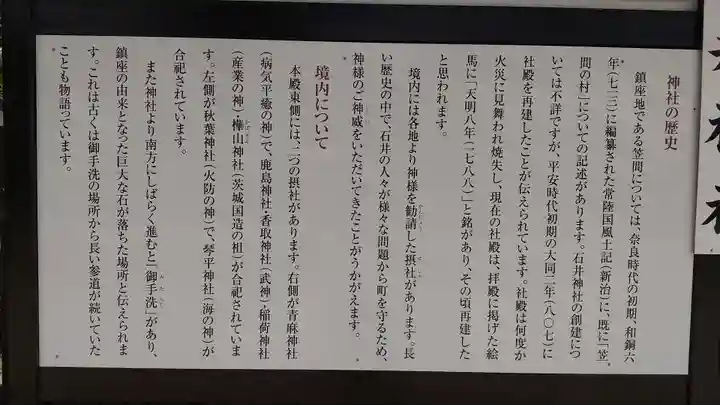 神社の歴史
鎮座地である笠間については、奈良時代の初期、和銅六
年(七一三)に編纂された常陸国風土記(新治)に、既に「笠
間の村」についての記述があります。石井神社の創建につ
いては不詳ですが、平安時代初期の大同二年(八〇七)に
社殿を再建したことが伝えられています。社殿は何度か
火災に見舞われ焼失し、現在の社殿は、拝殿に掲げた絵
馬に「天明八年(一七八八)」と銘があり、その頃再建した
と思われます。
境内には各地より神様を勧請した摂社があります。長
い歴史の中で、石井の人々が様々な問題から町を守るため、
神様のご神威をいただいてきたことがうかがえます。
境内について
本殿東側には、二つの摂社があります。右側が青麻神社
(病気平癒の神)で、鹿島神社・香取神社(武神)稲荷神社
(産業の神)樺山神社(茨城国造の祖)が合祀されていま
す。左側が秋葉神社(火防の神)で、琴平神社(海の神)が
合祀されています。
また神社より南方にしばらく進むと「御手洗」があり、
鎮座の由来となった巨大な石が落ちた場所と伝えられま
す。これは古くは御手洗の場所から長い参道が続いていた
ことも物語っています。